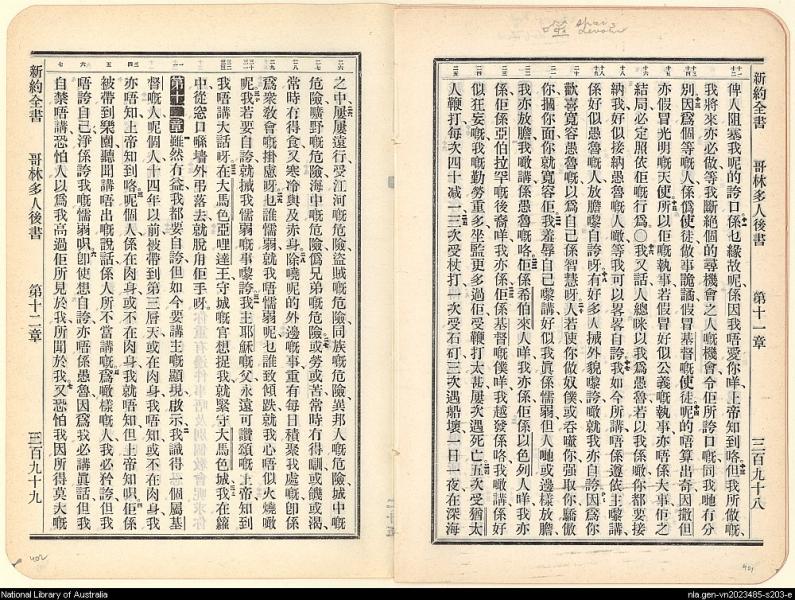 新約全書 哥林多人後書 第十一章 三百九十八
俾人阻塞我呢的誇口係乜緣故呢係因我唔愛你咩上帝知到咯但我所做嘅
我將來亦必做等我斷絕個的尋機會之人嘅機會令佢所誇口嘅同我哋有分
別因爲個等嘅人係僞使徒做事詭譎假冒基督嘅使徒呢的唔算出奇因撒但
亦假冒光明嘅天使所以佢嘅執事若假冒好似公義嘅執事亦唔係大事佢之
結局必定照依佢嘅行爲○我又話人總咪以我爲愚魯若以我係噉你都要接
納我好似接納愚魯嘅人噉等我可以畧畧自誇我如今所講唔係遵依主嚟講
係好似愚魯嘅人放膽嚟自誇呀有好多人 外貌嚟誇噉就我亦自誇因爲你
歡喜寬容愚魯嘅以爲自己係智慧呀人若使你做奴僕或吞噬你强取你驕傲
你摑你面你就寬容佢我羞辱自己嚟講好似我眞係懦弱但人哋或邊樣放膽
我亦放膽我噉講係愚魯嘅咯佢係希伯來人咩我亦係佢係以色列人咩我亦
係佢係亞伯拉罕嘅後裔咩我亦係佢係基督嘅僕咩我越發係咯我噉講係好
似狂妄嘅我嘅勤勞重多坐監更多過佢受鞭打太甚屢次遇死亡五次受猶太
人鞭打每次四十减一三次受杖打一次受石矴三次遇船壞一日一夜在深海
之中屢屢遠行受江河嘅危險盜賊嘅危險同族嘅危險異邦人嘅危險城中嘅
危險曠野嘅危險海中嘅危險僞兄弟嘅危險或勞或苦常時冇得瞓或饑或渴
常時冇得食又寒冷與及赤身除嘵呢的外邊嘅事重有每日積聚我處嘅卽係
爲衆敎會嘅掛慮呀乜誰懦弱就我唔懦弱呢乜誰致傾跌就我心唔似火燒噉
呢我若要自誇就 我懦弱嘅事嚟誇我主耶穌嘅父永遠可讚頌嘅上帝知到
我唔講大話呀在大馬色亞哩達王守城嘅官想捉我就緊守大馬色城我在籮
中從窓口喺墻外弔落去就脫甪佢手呀
第十二章雖然冇益我都要自誇但如今要講主嘅顯現啟示我識得 個屬基
督嘅人呢個人十四年以前被帶到第三層天或在肉身我唔知或不在肉身我
亦唔知上帝知到咯呢個人係在肉身或不在肉身我就唔知但上帝知 佢係
被帶到樂園聽聞講唔出嘅說話係人所不當講嘅爲噉樣嘅人我必矜誇但我
唔誇自己淨係誇我嘅懦弱 卽使想自誇亦唔係愚魯因爲我必講眞話但我
自禁唔講恐怕人以爲我高過佢所見於我所聞於我又恐怕我因所得莫大嘅
新約全書 哥林多人後書 第十二章 三百九十九
402
401
National Library of Australia
nla.gen-vn2023485-s203-e